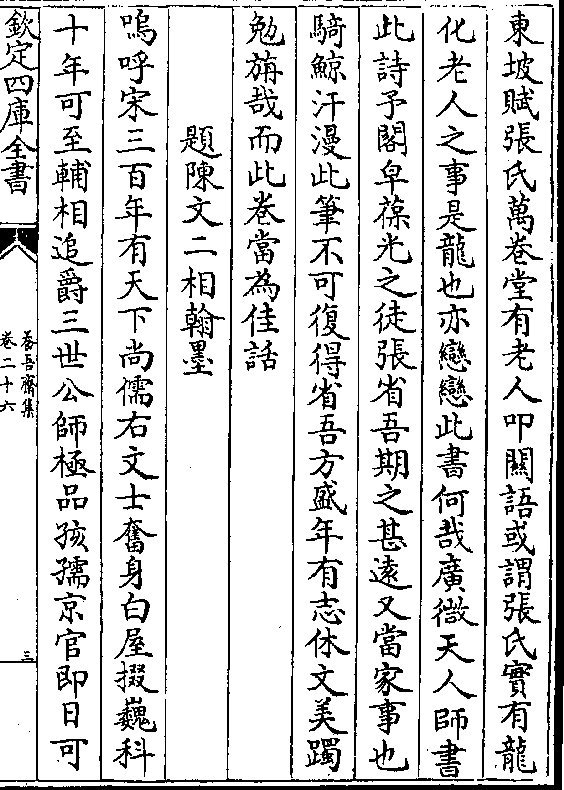 東坡賦張氏萬卷堂有老人叩關語或謂張氏實有龍
化老人之事是龍也亦戀戀此書何哉廣微天人師書
此詩予閣皁葆光之徒張省吾期之甚逺又當家事也
騎鯨汗漫此筆不可復得省吾方盛年有志休文美躅
勉旃哉而此卷當為佳話
題陳文二相翰墨
嗚呼宋三百年有天下尚儒右文士奮身白屋掇巍科
十年可至輔相追爵三世公師極品孩孺京官即日可
欽定四庫全書
養吾齋集
卷二十六
三